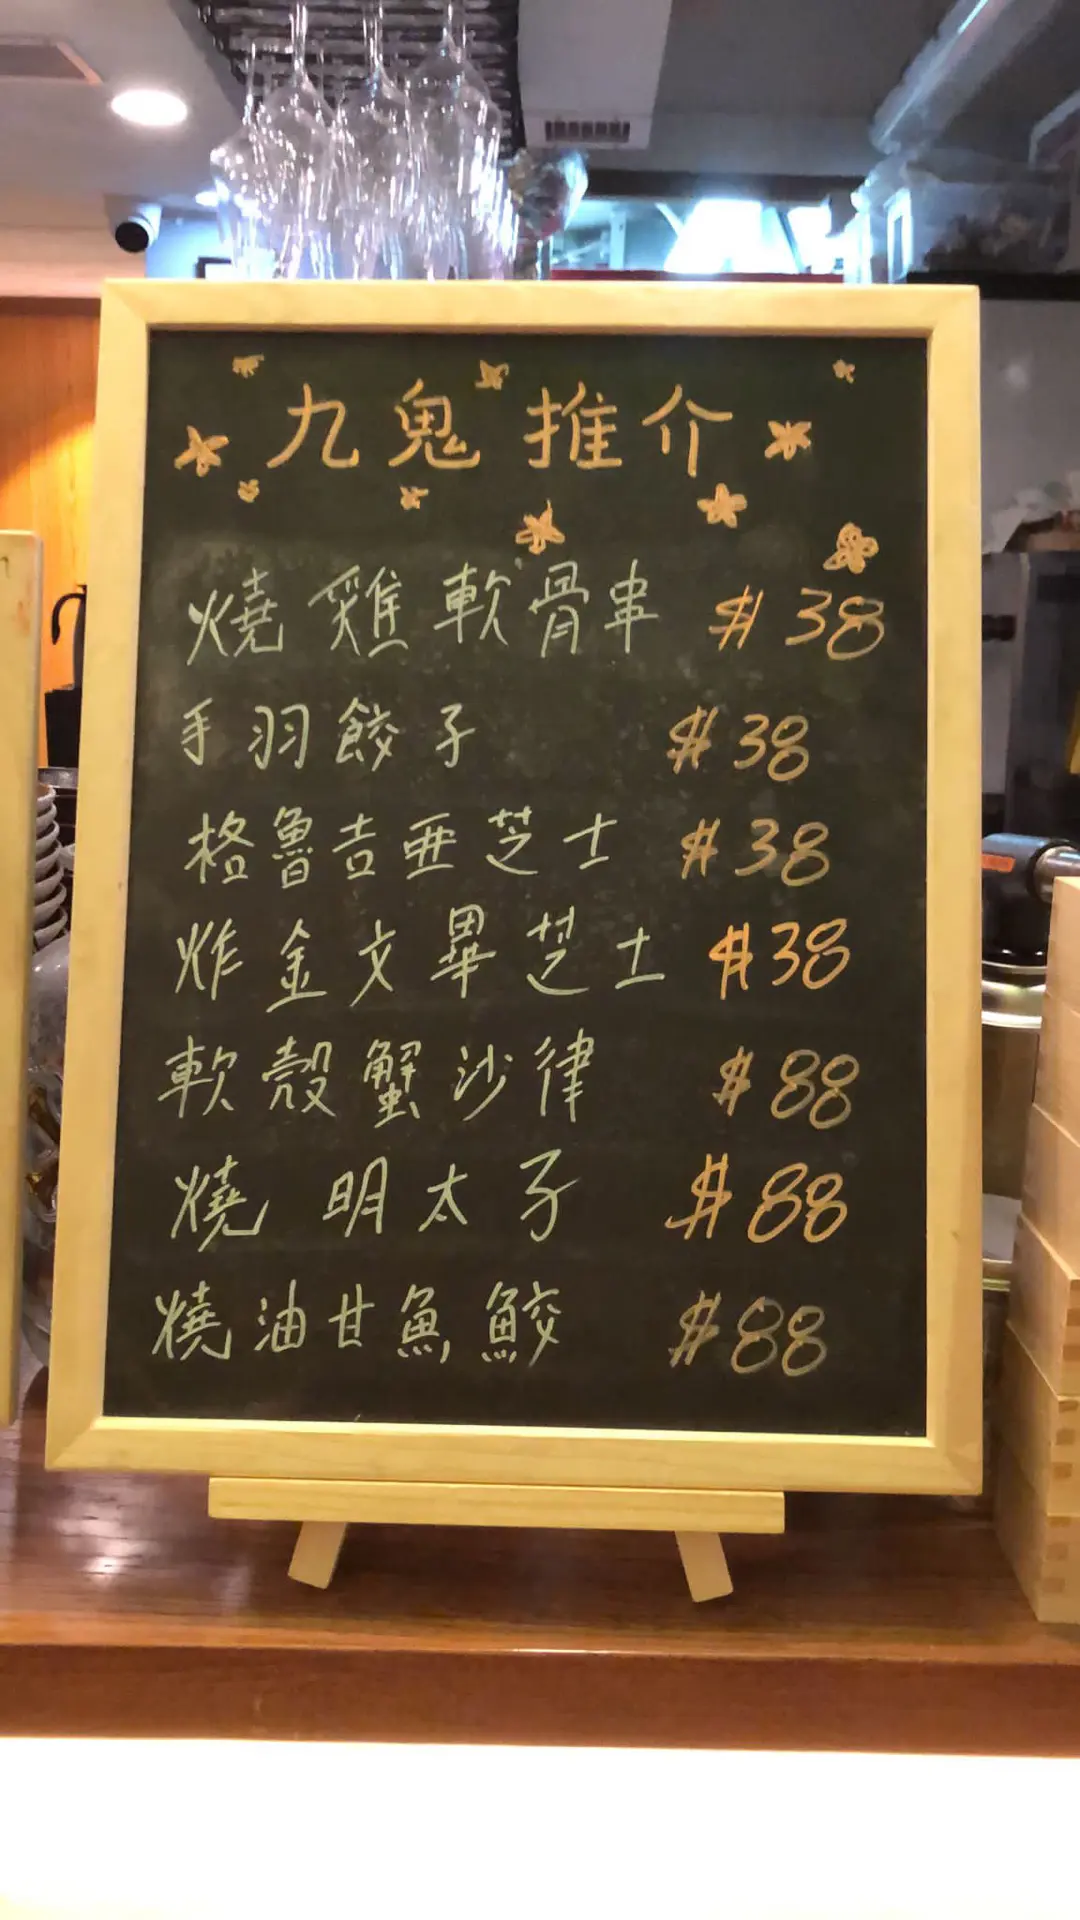 九鬼推介
燒雞軟骨串 $38
手羽餃子 $38
格魯吉亜芝士 $38
炸金文畢芝士 $38
軟殼蟹沙律 $88
燒明太子 $88
燒油甘魚鮫 $88